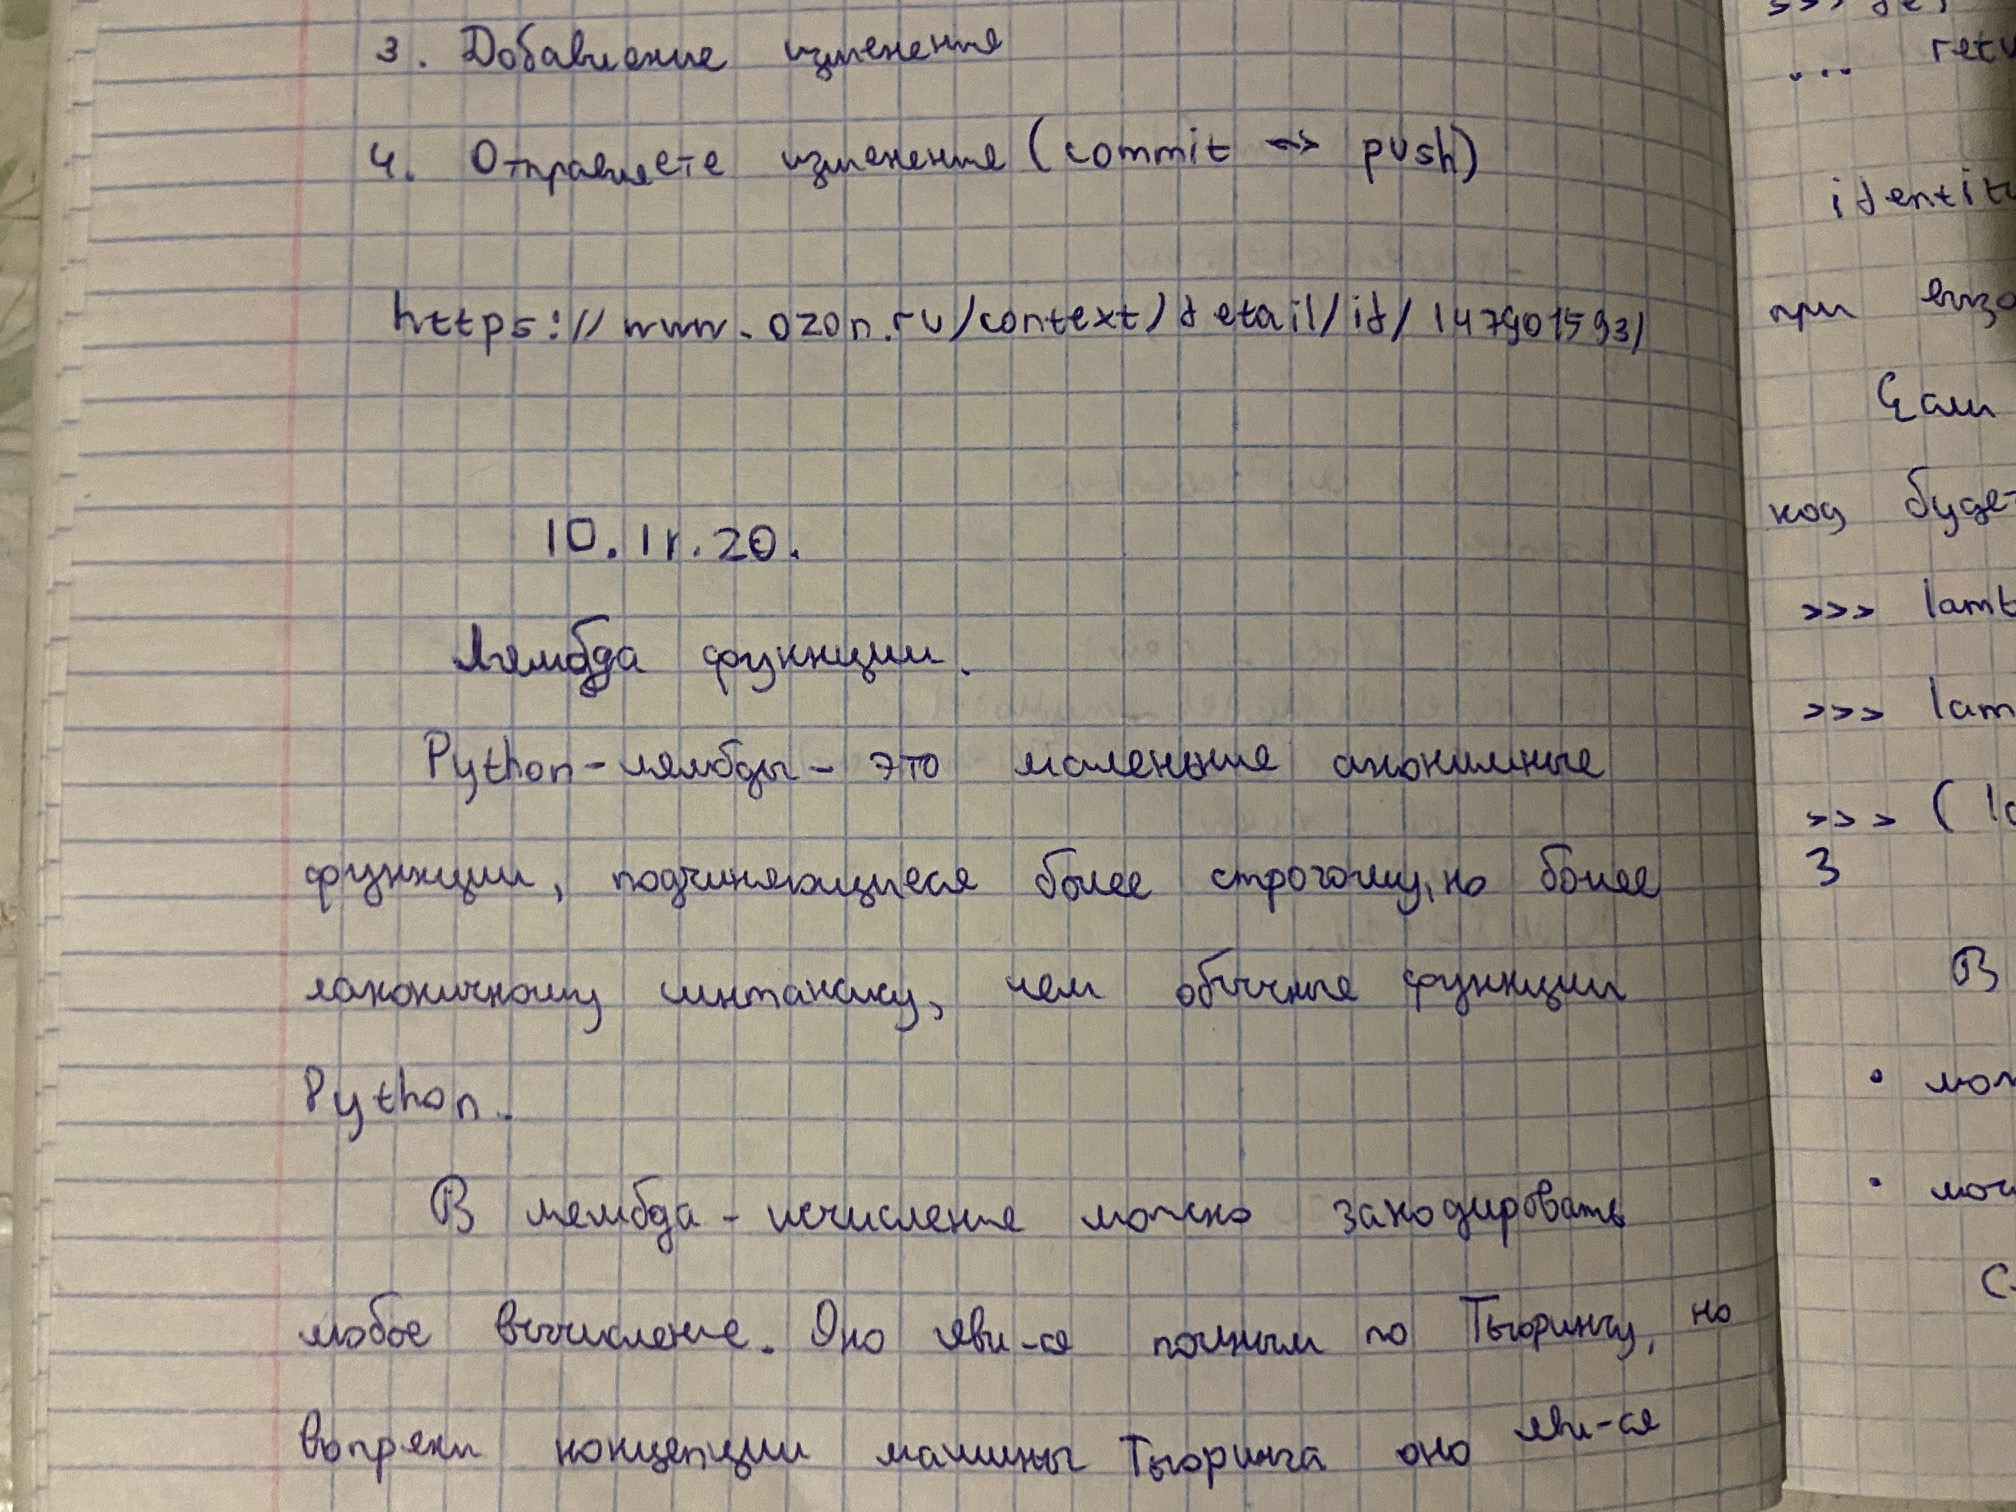 3. Добавление изменения
4. Отправляете изменения (commit → push)
https://www.ozon.ru/context/detail/id/147901593/
10.11.20.
Лямбда функции.
Python-лямбды - это маленькие анонимные
функции, подчиняющиеся более строгому, но более
лаконичному синтаксису, чем обычные функции
Python.
В лямбда-исчисление можно закодировать
любое вычисление. Оно явл-ся полным по Тьюрингу, но
вопреки концепции машины Тьюринга оно явл-ся
identit
при
Если
код будет
>>>
>>>
>>>
3
В